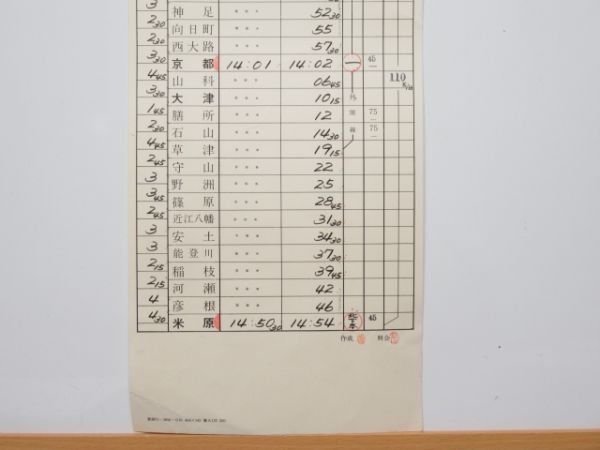 3 神足 ・・・ 52 30
2 30 向日町 ・・・ 55
2 30 西大路 ・・・ 57 30
3 30 京都 14:01 14:02 一 45
4 45 山科 ・・・ 06 45 110
3 30 大津 ・・・ 10 15 外
1 45 膳所 ・・・ 12 側 75
2 30 石山 ・・・ 14 30 線 75
4 45 草津 ・・・ 19 15
2 45 守山 ・・・ 22
3 野洲 ・・・ 25
3 45 篠原 ・・・ 28 45
2 45 近江八幡 ・・・ 31 30
3 安土 ・・・ 34 30
3 能登川 ・・・ 37 30
2 15 稲枝 ・・・ 39 45
2 15 河瀬 ・・・ 42
4 彦根 ・・・ 46
4 30 米原 14:50 30 14:54 45
作成 照合